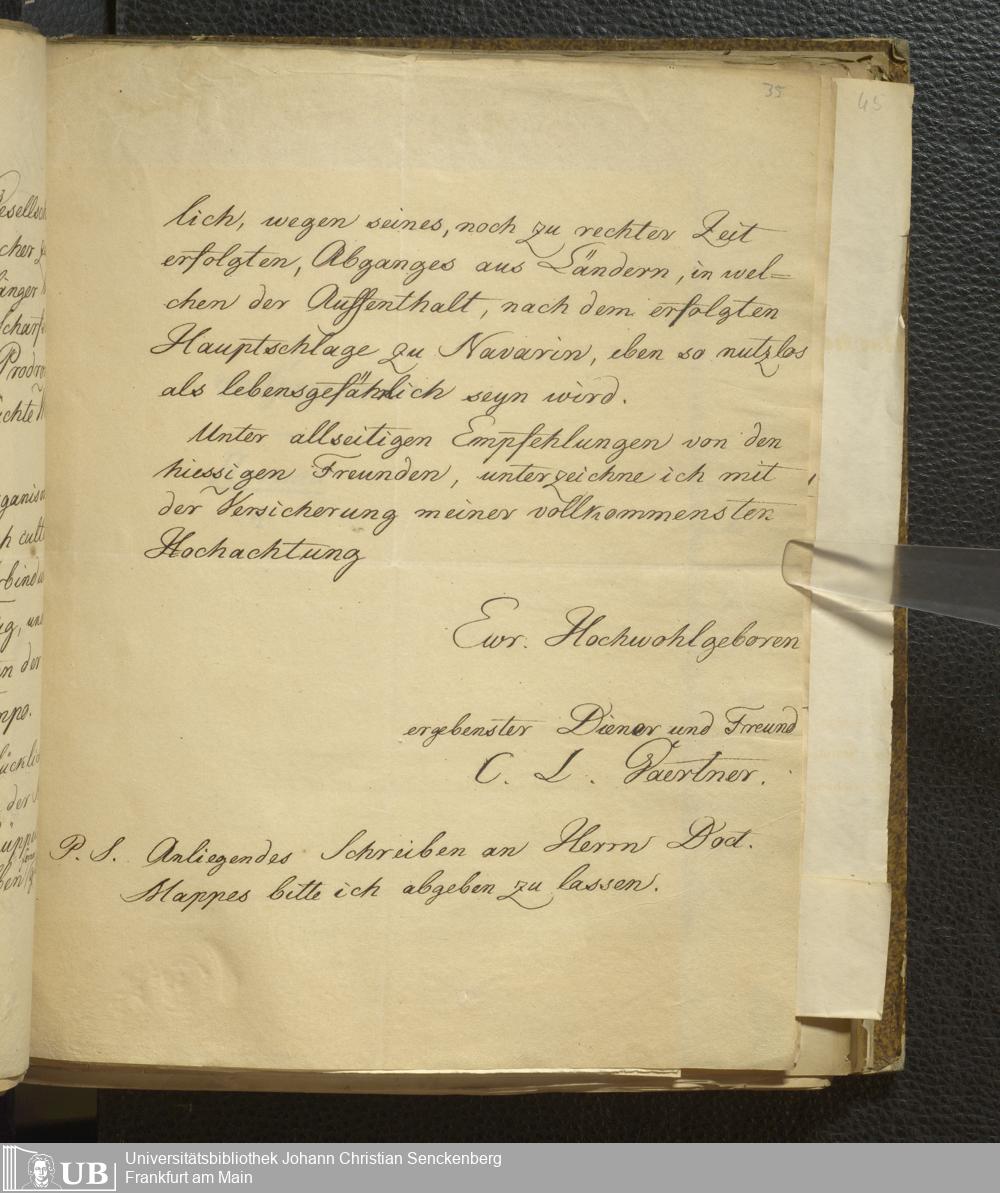 35
45
lich, wegen seines, noch zu rechter Zeit
erfolgten, Abganges aus Ländern, in wel=
chen der Auffenthalt, nach dem erfolgten
Hauptschlage zu Navarin, eben so nutzlos
als lebensgefährlich seyn wird.
Unter allseitigen Empfehlungen von den
hiessigen Freunden, unterzeichne ich mit
der Versicherung meiner vollkommensten
Hochachtung
Ewr. Hochwohlgeboren
ergebenster Diener und Freund
C. L. Gaertner.
P. S. Anliegendes Schreiben an Herrn Doct.
Mappes bitte ich abgeben zu lassen.
UB
Universitätsbibliothek Johann Christian Senckenberg
Frankfurt am Main